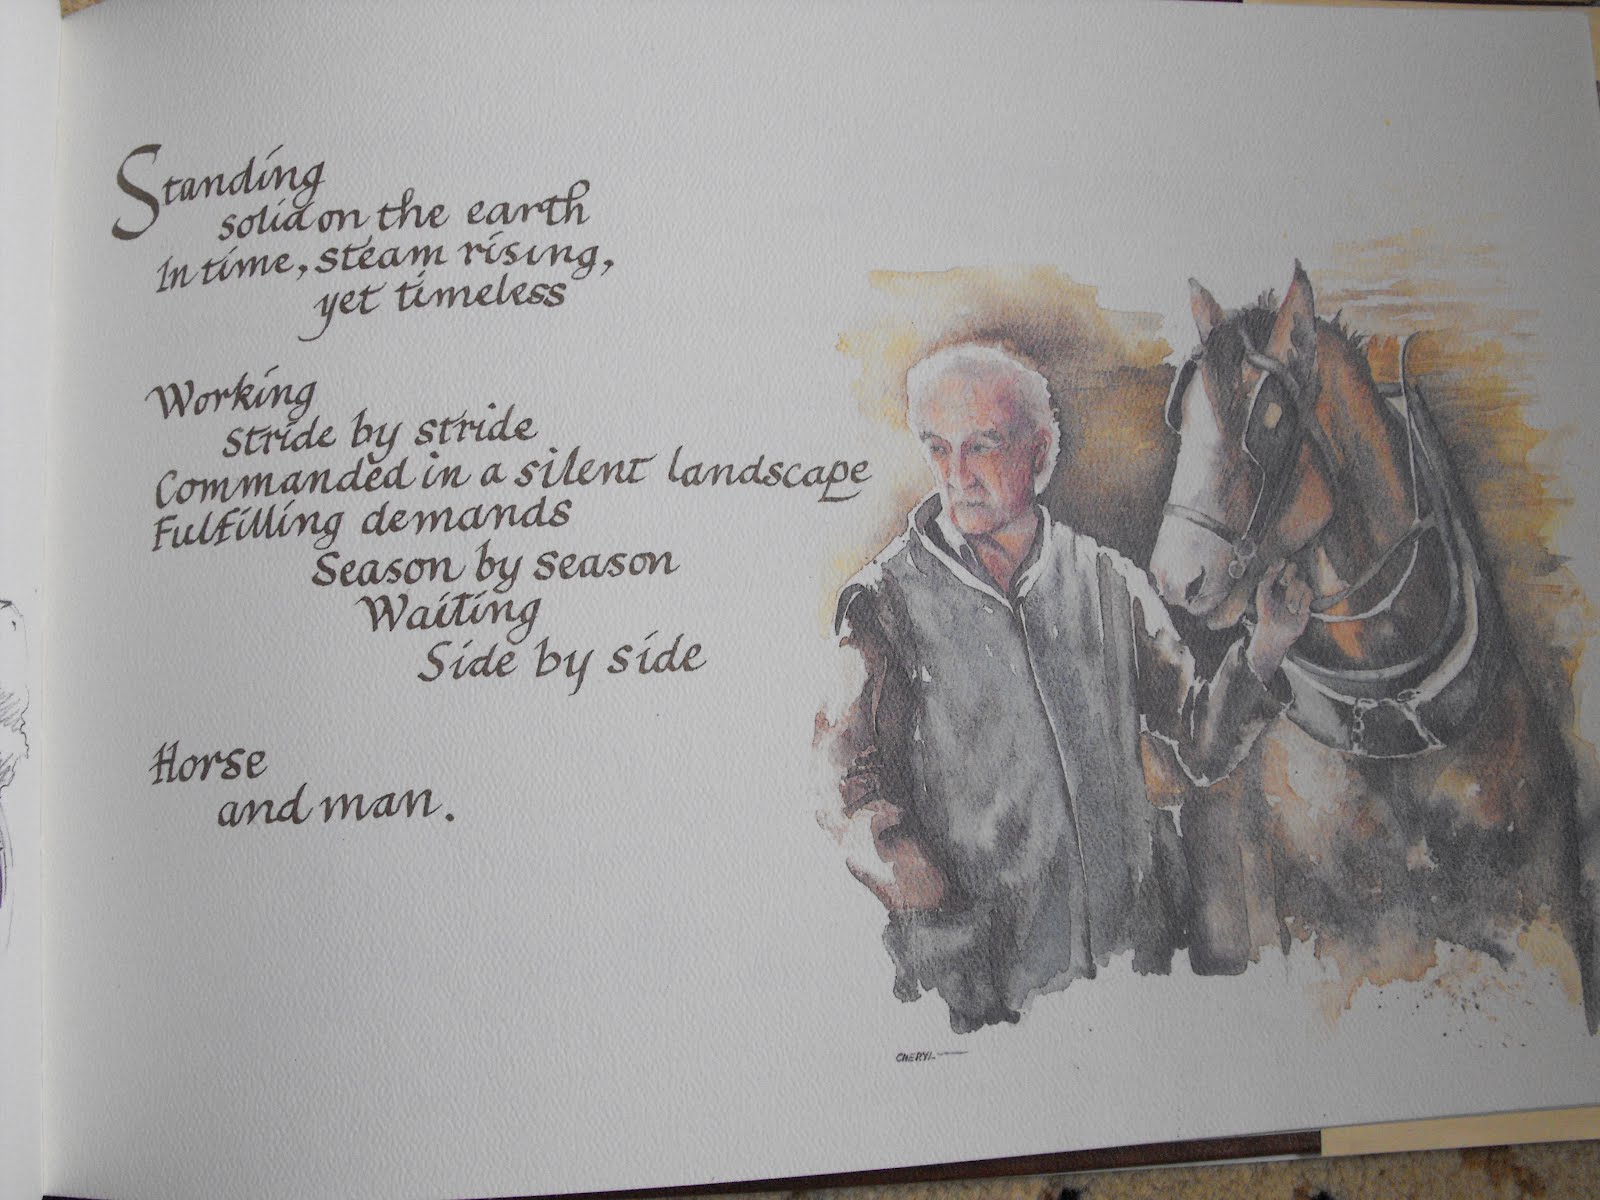 Standing
solid on the earth
In time, steam rising,
yet timeless
Working
stride by stride
Commanded in a silent landscape
Fulfilling demands
Season by season
Waiting
Side by side
Horse
and man.
CHERYL